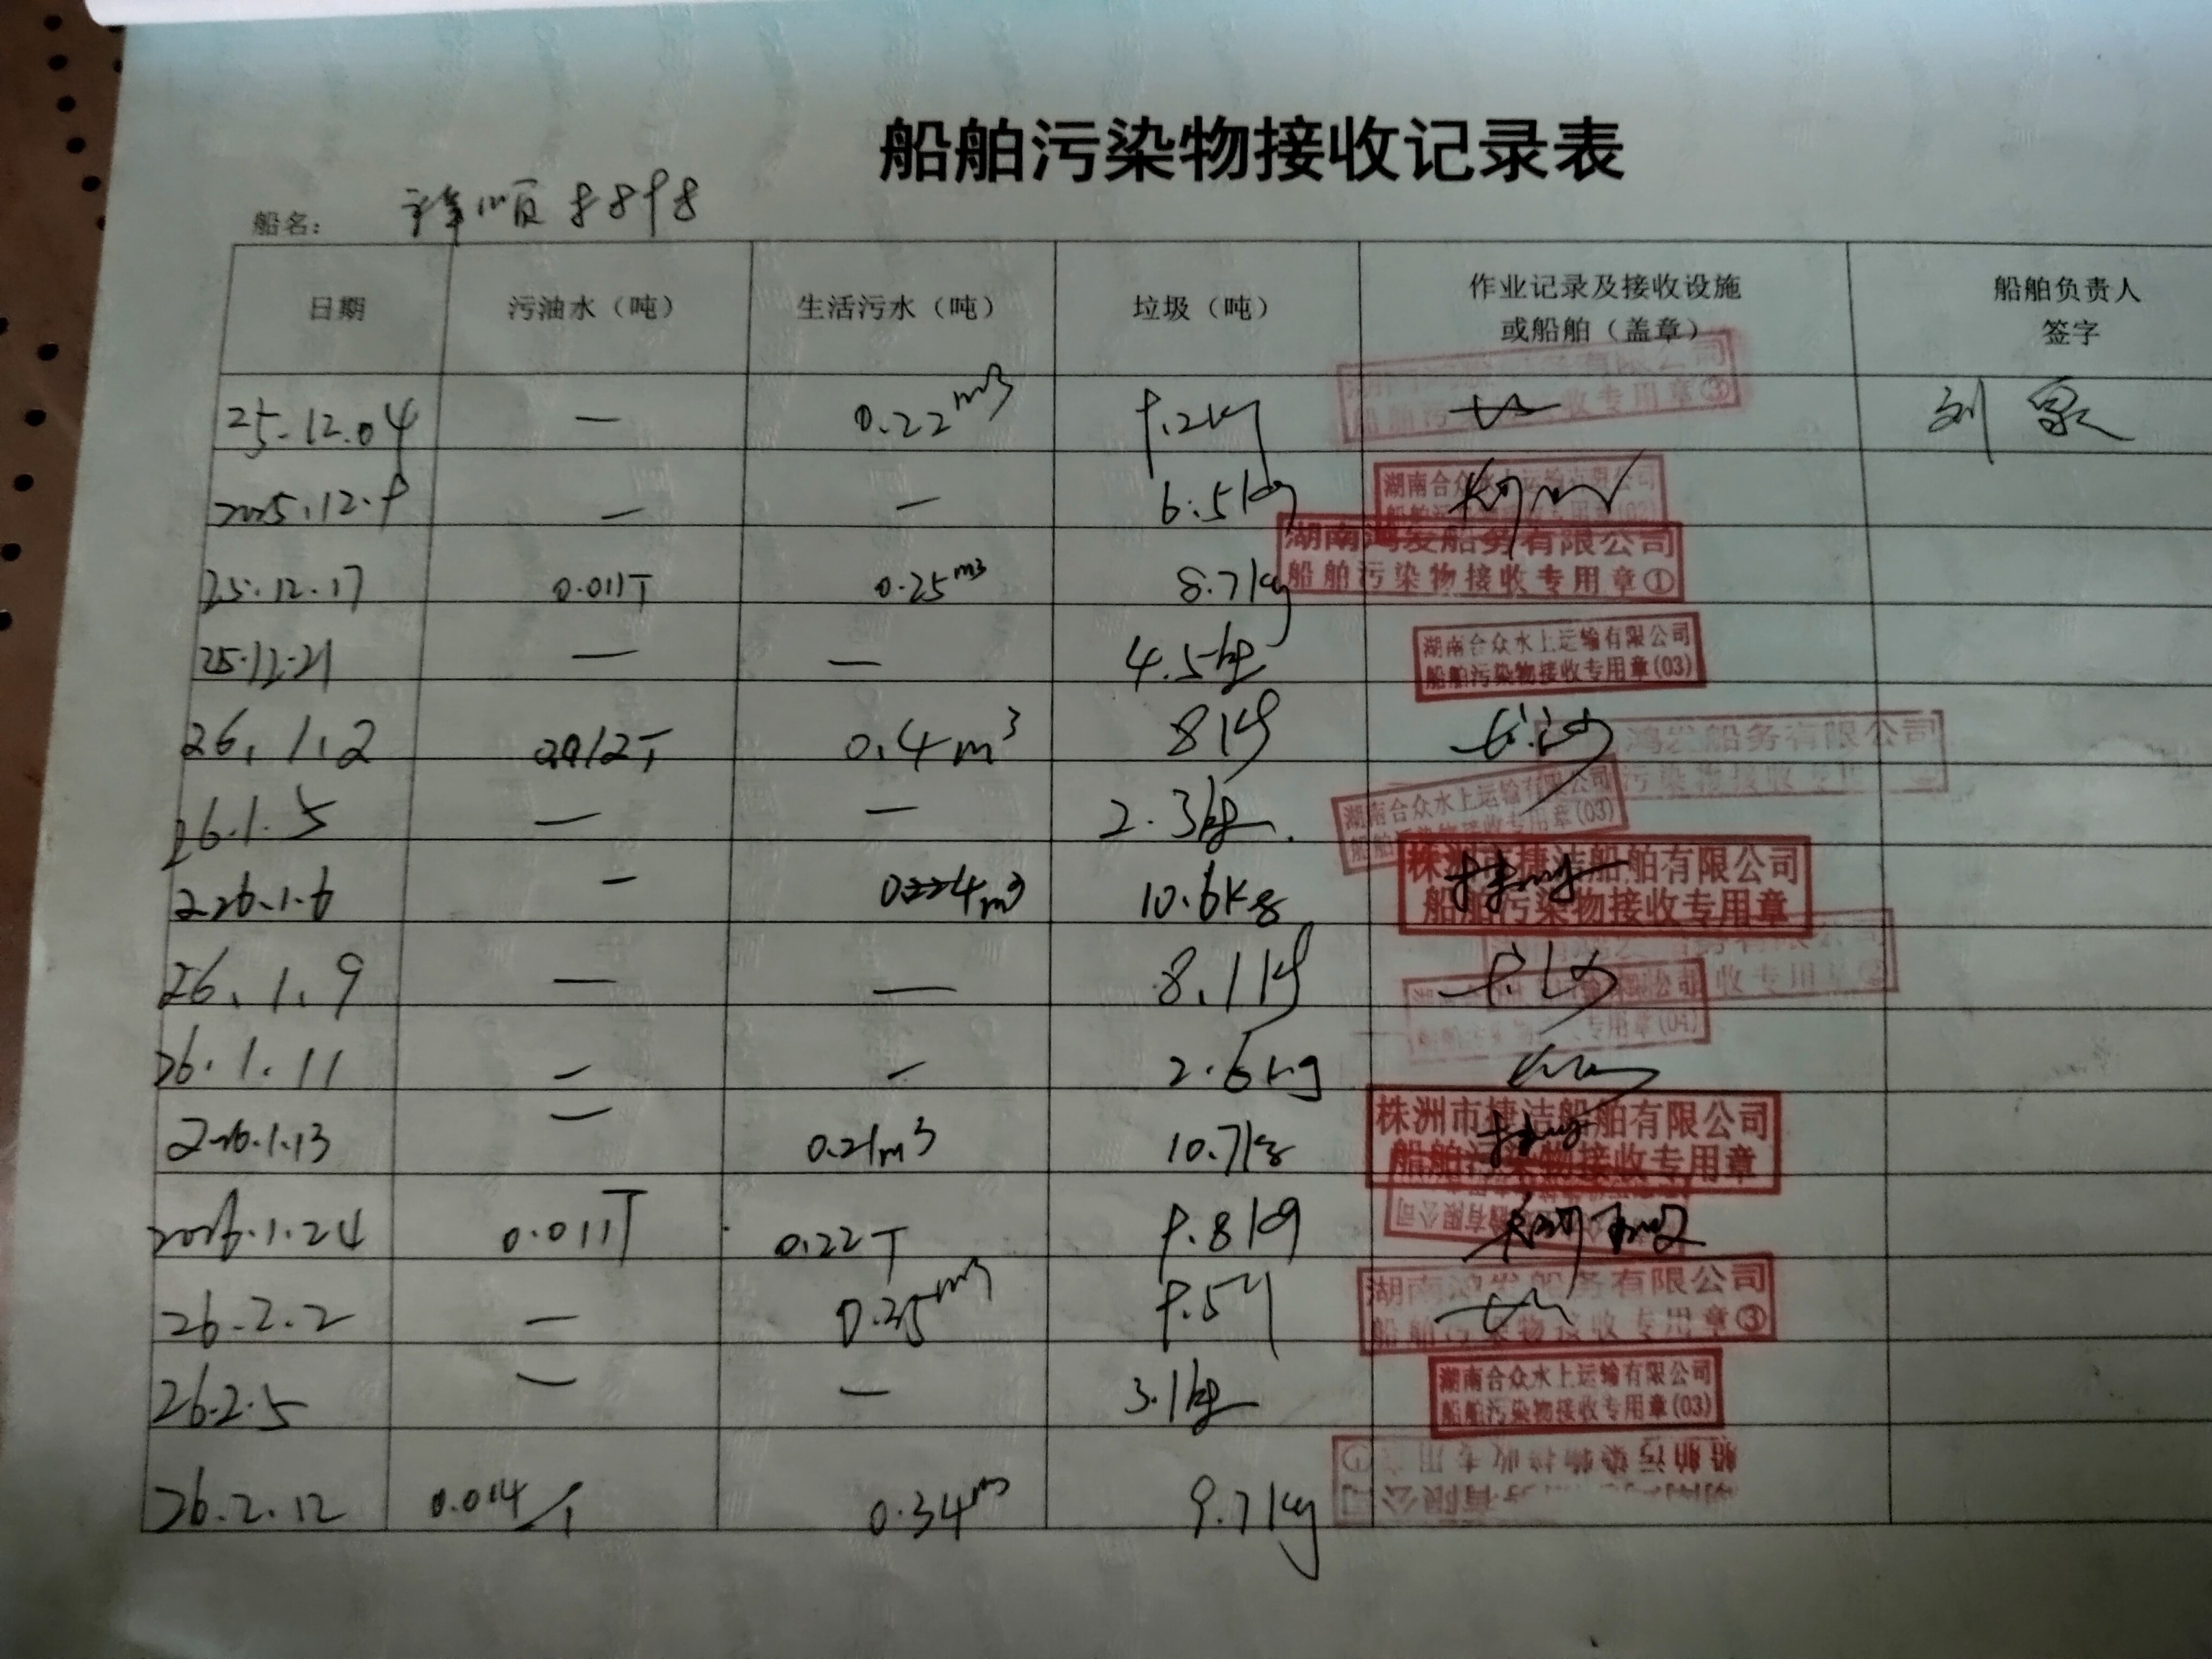 船舶污染物接收记录表
船名： 祥顺8898
日期 污油水（吨） 生活污水（吨） 垃圾（吨） 作业记录及接收设施或船舶（盖章） 船舶负责人签字
25.12.04 — 0.22m3 9.2kg 船舶污 收专用章③ 刘泉
2025.12.9 — — 6.5kg 湖南合众水上运输有限公司
25.12.17 0.011T 0.25m3 8.7kg 湖南鸿发船务有限公司 船舶污染物接收专用章①
25.12.21 — — 4.5kg 湖南合众水上运输有限公司 船舶污染物接收专用章(03)
26.1.2 0.012T 0.4m3 8kg 鸿发船务有限公司 污染物接收专用
26.1.5 — — 2.3kg. 湖南合众水上运输有限公司 船舶污染物接收专用章(03)
2026.1.6 — 0.224m3 10.6Kg 株洲市捷洁船舶有限公司 船舶污染物接收专用章
26.1.9 — — 8.1kg 收专用章②
26.1.11 — — 2.6kg 专用章(04)
2026.1.13 — 0.21m3 10.7kg 株洲市捷洁船舶有限公司 船舶污染物接收专用章
2026.1.24 0.011T 0.22T 9.8kg
26.2.2 — 0.25m3 9.5kg 湖南鸿发船务有限公司 船舶污染物接收专用章③
26.2.5 — — 3.1kg 湖南合众水上运输有限公司 船舶污染物接收专用章(03)
26.2.12 0.014T 0.34m3 9.7kg 船舶污染物接收专用 有限公司